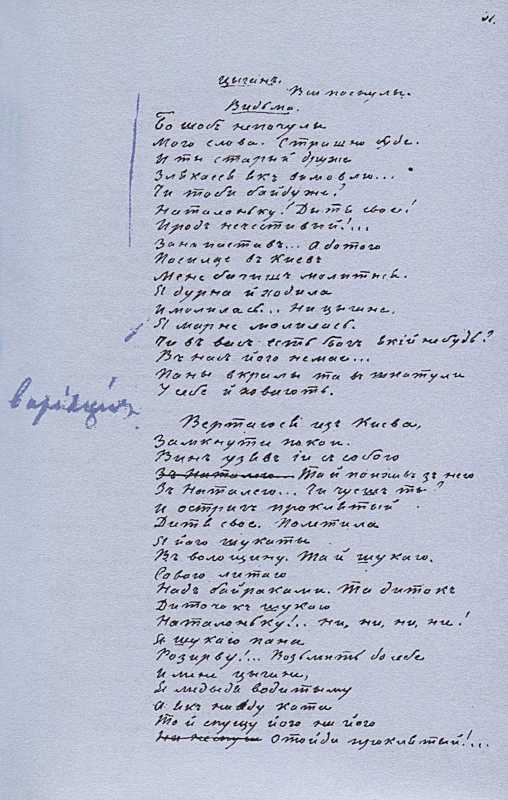 31.
Цыганъ.
Вси поснулы.
Видьма.
Бо щобъ непочулы
Мого слова. Страшно буде.
И ты старый друже
Злякаесся якъ вимовлю...
Чи тоби байдуже?
Наталоньку! Дытя свое!
Иродъ нечестивый!...
Занапаствъ... Аботого
Посилае въ Киевъ
Мене бачишъ молитися.
Я дурна й ходила
И молилась.. Ни цыгане.
Я марне молилась.
Чи въ васъ есть богъ який небудь?
Въ насъ його немае...
Паны вкралы та въ шкатули
У себе й ховають.
варіяція
Вертаюся изъ Киева,
Замкнути покои.
Винъ узявъ іи съ собою
Зъ Наталею... Та й поихавъ зъ нею
Зъ Наталею... Чи чуешъ ты?
И остригъ проклятый
Дитя свое. Полетила
Я його шукаты
Въ волощину. Та й шукаю.
Совою литаю
Надъ байраками. Та диток
Диточокъ шукаю
Наталоньку!.. ни, ни, ни, ни!
Я шукаю пана
Розирву!... Возьмить босебе
И мене цыгане,
Я медьвдя водитыму
А якъ найду ката
То й спущу його на його
Отойди проклятый!...